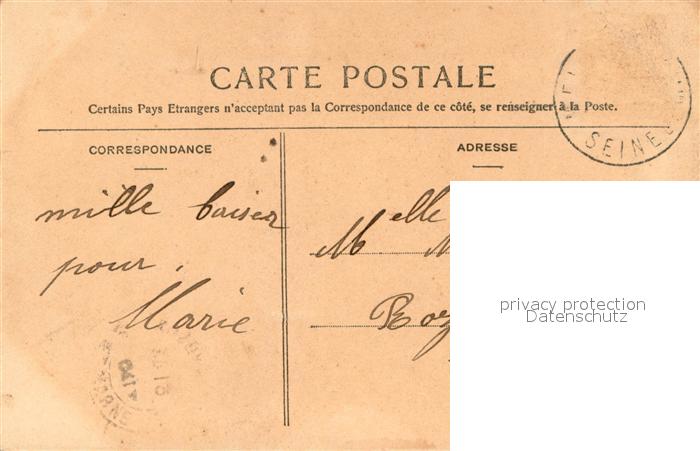 CARTE POSTALE
Certains Pays Etrangers n'acceptant pas la Correspondance de ce côté, se renseigner à la Poste.
CORRESPONDANCE
ADRESSE
SEINE
mille baiser
pour
Marie
Melle
Roz
privacy protection
Datenschutz